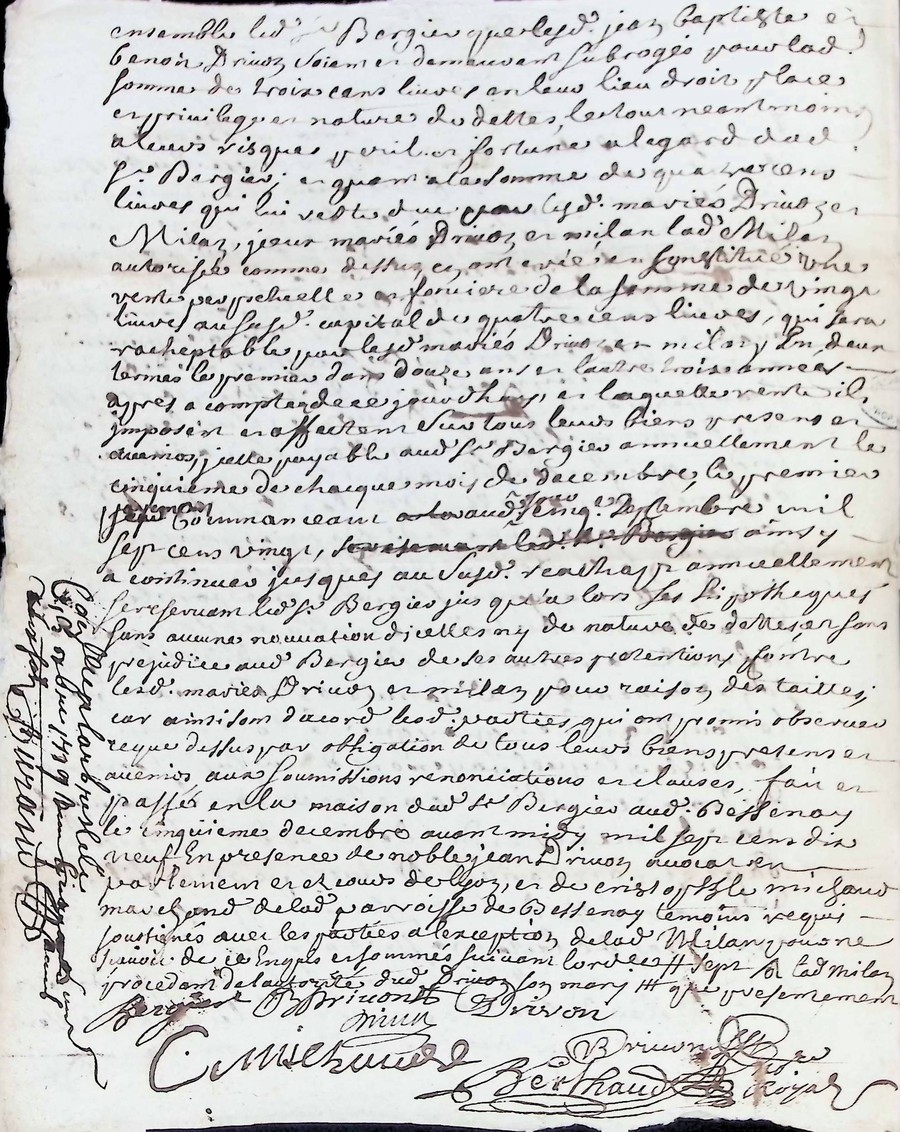 ensemble led. Sr Bergier que lesd. jean baptiste et
benoit Drivon soient et demeurent subrogés pour lad.
somme de trois cens livres en leur lieu droit place
et privilege et nature de dettes, le tout neantmoins
a leurs risques peril et fortune a legard dud.
Sr Bergier; et quant a la somme de quatre cens
livres qui lui reste due par lesd. mariés Drivon et
Milan, iceux mariés Drivon et milan lad. Milan
autorisée comme dessus ont creé et constitué une
rente perpetuelle et fonciere de la somme de vingt
livres au susd. capital de quatre cens livres, qui sera
racheptable par lesd. mariés Drivon et milan En deux
termes le premier dans douze ans et lautre trois années
apres a compter de ce jourdhuy, et laquelle rente ils
imposent et affectent sur tous leurs biens presens et
avenir, icelle payable aud. Sr Bergier annuellement le
cinquieme de chacque mois de decembre, le premier
payement Commanceant aud. jour cinq. Decembre mil
sept cens vingt, ainsy
a continuer jusques au susd. reachapt annuellement
se reservant led. Sr Bergier jusqu'a lors ses Hipotheques
sans aucune nouvation dicelles ny de nature de dettes, et sans
prejudice aud. Bergier de ses autres pretentions contre
lesd. mariés Drivon et milan pour raison des tailles;
car ainsi sont dacord lesd. parties, qui ont promis observer
ce que dessus par obligation de tous leurs biens presens et
avenir, aux soumissions renonciations et clauses, fait et
passé en la maison dud. Sr Bergier aud. Bessenay
le cinquieme decembre avant midy mil sept cens dix
neuf En presence de noble jean Drivon avocat en
parlement et et cours de lyon, et de cristophle michaud
marchand de lad. parroisse de Bessenay temoins requis
soussignés avec les parties a lexception de lad. Milan pour ne
scavoir de ce Enquis et sommés suivant lord.ce # sept # lad. Milan
procedant de lautorité dud. Drivon son mary # que presentement
Bergier B Drivon Drivon
C Michaude
Drivon
Berthaud
Royal
Con.lé a larbresle
le 1719